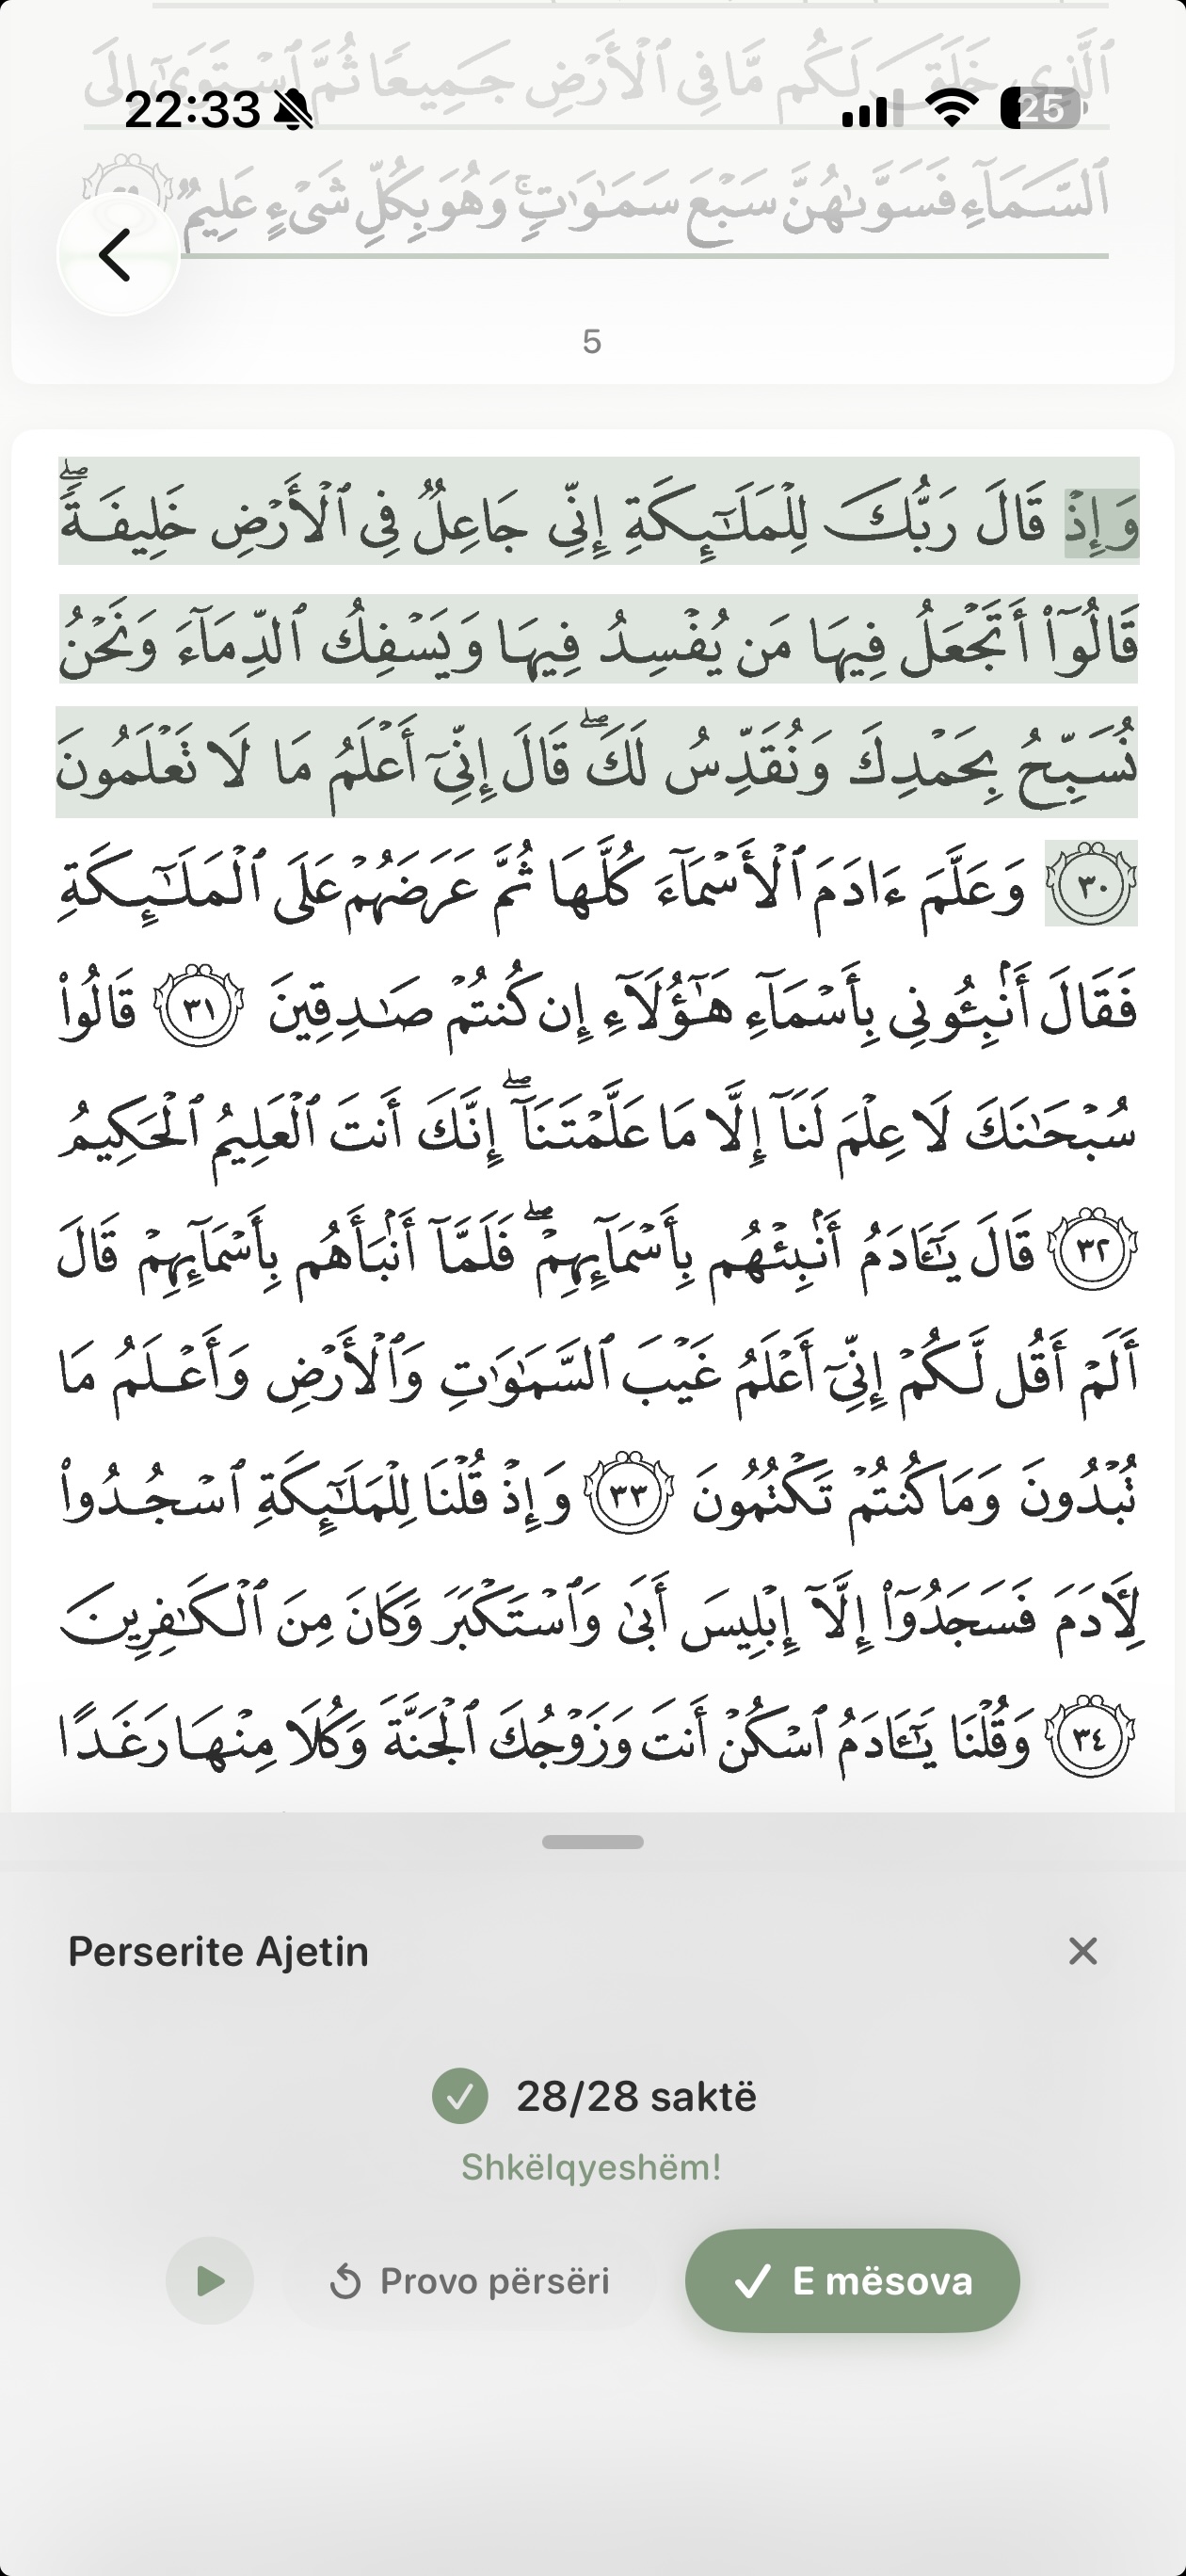 ٱلَّذِى خَلَقَ لَكُم مَّا فِى ٱلْأَرْضِ جَمِيعًا ثُمَّ ٱسْتَوَىٰٓ إِلَى
22:33 25
ٱلسَّمَآءِ فَسَوَّىٰهُنَّ سَبْعَ سَمَٰوَٰتٍۚ وَهُوَ بِكُلِّ شَىْءٍ عَلِيمٌ
5
وَإِذْ قَالَ رَبُّكَ لِلْمَلَٰٓئِكَةِ إِنِّى جَاعِلٌ فِى ٱلْأَرْضِ خَلِيفَةًۖ
قَالُوٓا۟ أَتَجْعَلُ فِيهَا مَن يُفْسِدُ فِيهَا وَيَسْفِكُ ٱلدِّمَآءَ وَنَحْنُ
نُسَبِّحُ بِحَمْدِكَ وَنُقَدِّسُ لَكَۖ قَالَ إِنِّىٓ أَعْلَمُ مَا لَا تَعْلَمُونَ
٣٠ وَعَلَّمَ ءَادَمَ ٱلْأَسْمَآءَ كُلَّهَا ثُمَّ عَرَضَهُمْ عَلَى ٱلْمَلَٰٓئِكَةِ
فَقَالَ أَنۢبِـُٔونِى بِأَسْمَآءِ هَٰٓؤُلَآءِ إِن كُنتُمْ صَٰدِقِينَ ٣١ قَالُوا۟
سُبْحَٰنَكَ لَا عِلْمَ لَنَآ إِلَّا مَا عَلَّمْتَنَآۖ إِنَّكَ أَنتَ ٱلْعَلِيمُ ٱلْحَكِيمُ
٣٢ قَالَ يَٰٓـَٔادَمُ أَنۢبِئْهُم بِأَسْمَآئِهِمْۖ فَلَمَّآ أَنۢبَأَهُم بِأَسْمَآئِهِمْ قَالَ
أَلَمْ أَقُل لَّكُمْ إِنِّىٓ أَعْلَمُ غَيْبَ ٱلسَّمَٰوَٰتِ وَٱلْأَرْضِ وَأَعْلَمُ مَا
تُبْدُونَ وَمَا كُنتُمْ تَكْتُمُونَ ٣٣ وَإِذْ قُلْنَا لِلْمَلَٰٓئِكَةِ ٱسْجُدُوا۟
لِـَٔادَمَ فَسَجَدُوٓا۟ إِلَّآ إِبْلِيسَ أَبَىٰ وَٱسْتَكْبَرَ وَكَانَ مِنَ ٱلْكَٰفِرِينَ
٣٤ وَقُلْنَا يَٰٓـَٔادَمُ ٱسْكُنْ أَنتَ وَزَوْجُكَ ٱلْجَنَّةَ وَكُلَا مِنْهَا رَغَدًا
Perserite Ajetin
28/28 saktë
Shkëlqyeshëm!
Provo përsëri
E mësova